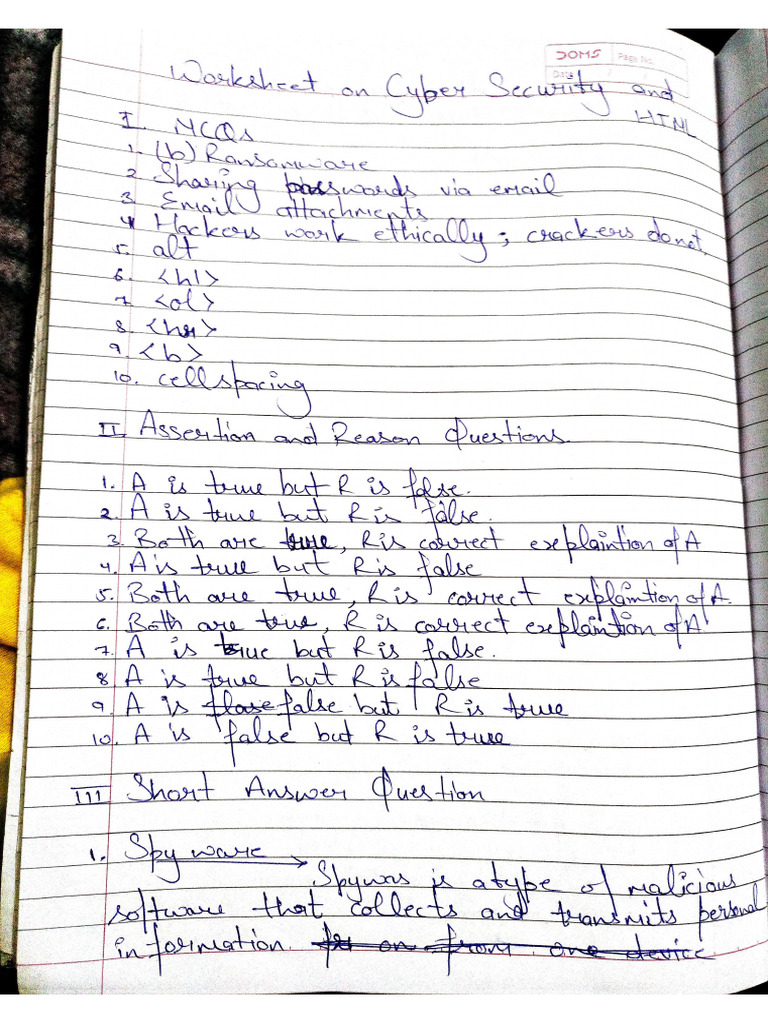 DOMS Page No.
Date / /
Worksheet on Cyber Security and
HTML
I. MCQs
1. (b) Ransomware
2 Sharing passwords via email
3 Email attachments
4 Hackers work ethically; crackers do not.
5. alt
6. <h1>
7. <ol>
8. <hr>
9. <b>
10. cellspacing
II Assertion and Reason Questions.
1. A is true but R is false.
2. A is true but R is false.
3. Both are true, R is correct explaintion of A
4. A is true but R is false
5. Both are true, R is correct explaintion of A.
6. Both are true, R is correct explaintion of A
7. A is true but R is false.
8 A is true but R is false
9. A is flase false but R is true
10. A is false but R is true
III Short Answer Question
1. Spyware →
Spywas is a type of malicious
software that collects and transmits personal
information. on from one device